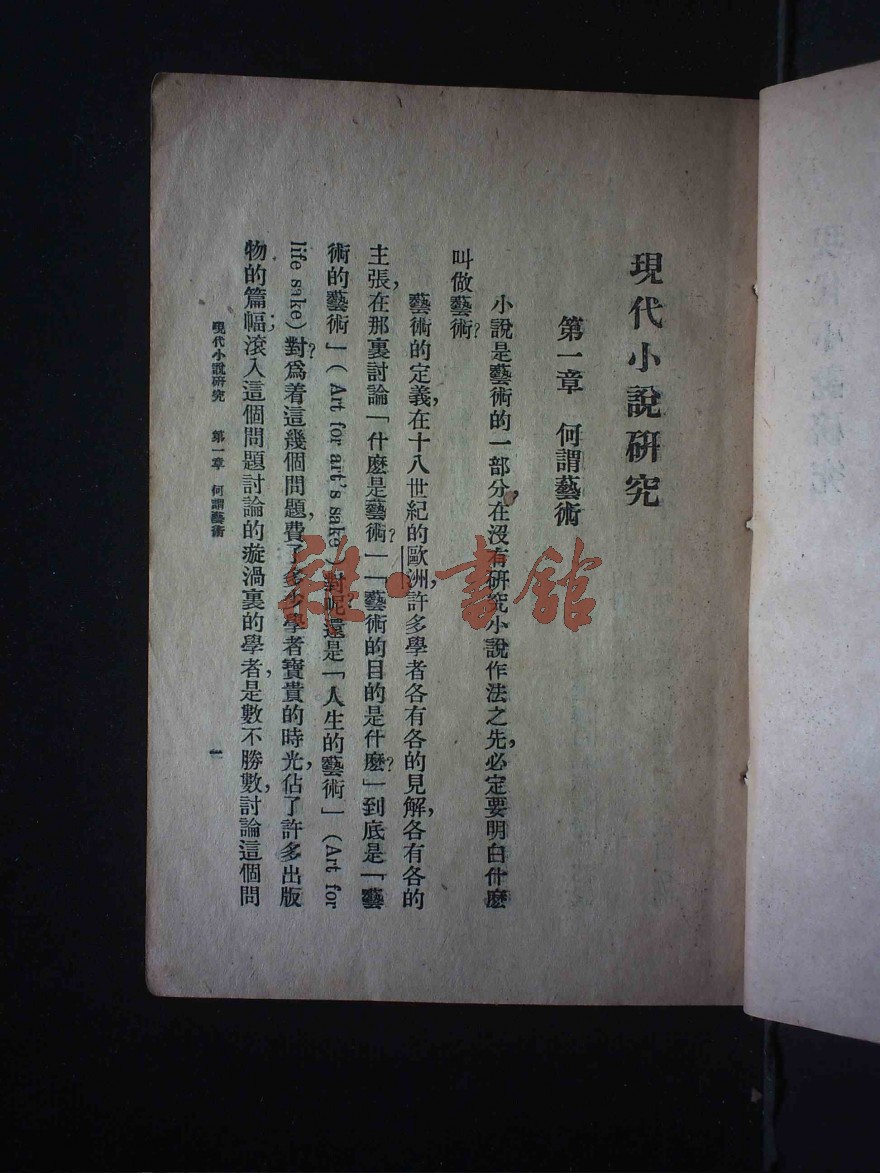 現代小說研究
第一章　何謂藝術
小說是藝術的一部分，在沒有研究小說作法之先，必定要明白什麼
叫做藝術？
藝術的定義，在十八世紀的歐洲，許多學者各有各的見解，各有各的
主張，在那裏討論「什麼是藝術？」「藝術的目的是什麼？」到底是「藝
術的藝術」(Art for art's sake)對呢？還是「人生的藝術」(Art for
life sake)對？爲着這幾個問題，費了多少學者寶貴的時光，佔了許多出版
物的篇幅；滾入這個問題討論的漩渦裏的學者，是數不勝數，討論這個問
現代小說研究　第一章　何謂藝術
一
雜·書館